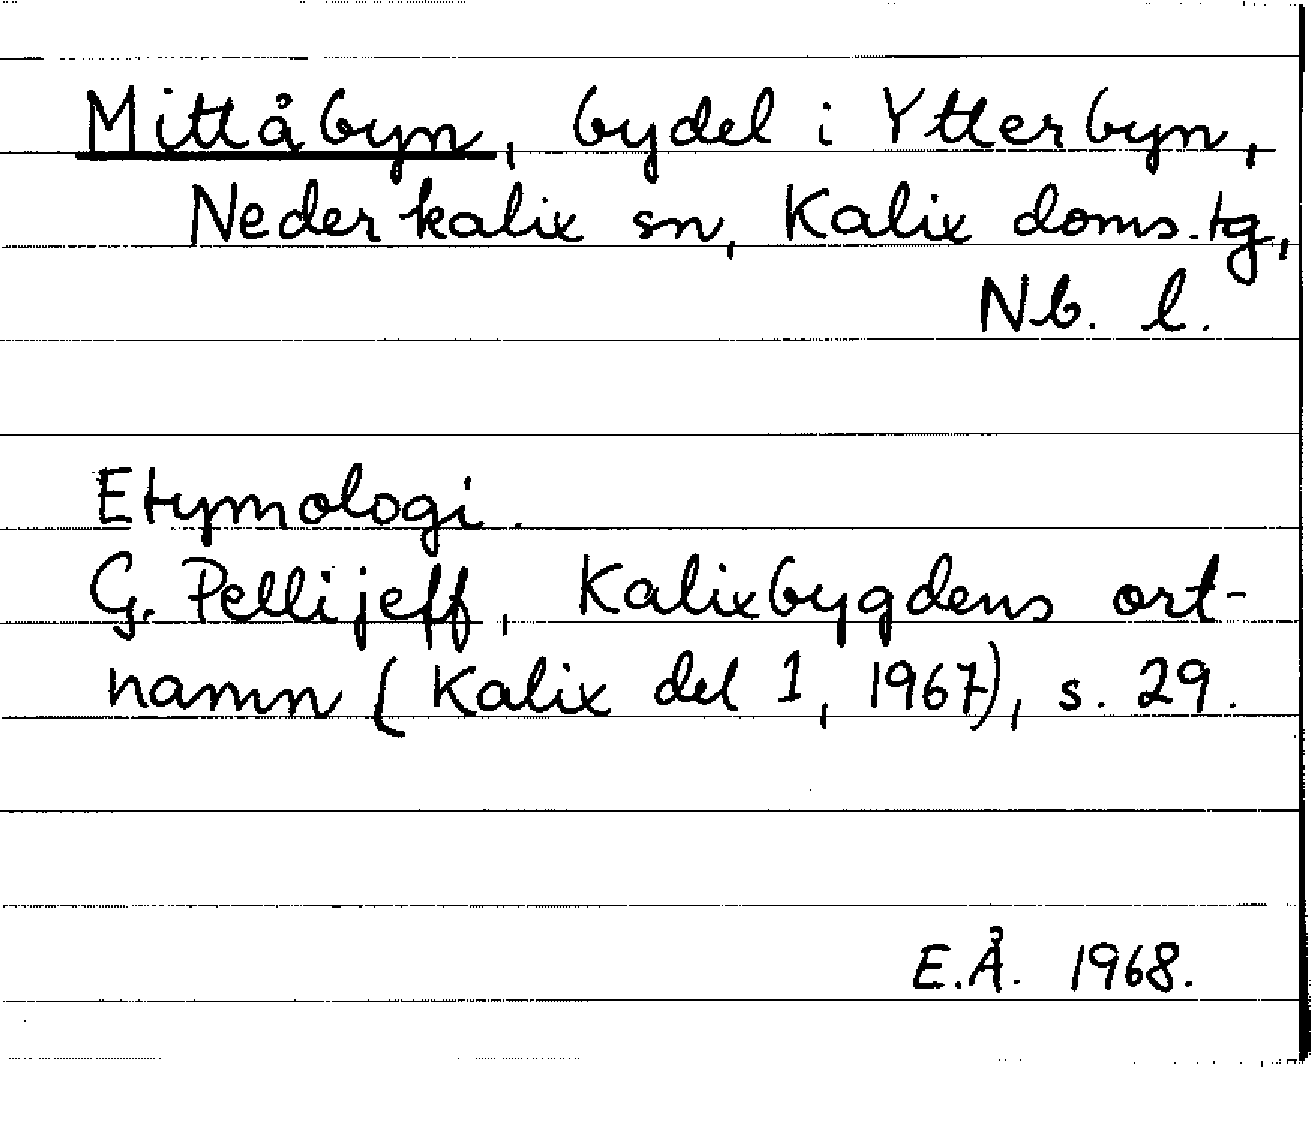 Mittåbyn, bydel i Ytterbyn,
Nederkalix sn, Kalix doms.tg,
Nb. l.
Etymologi.
G. Pellijeff, Kalixbygdens ort-
namn (Kalix del 1, 1967), s. 29.
E.Å. 1968.